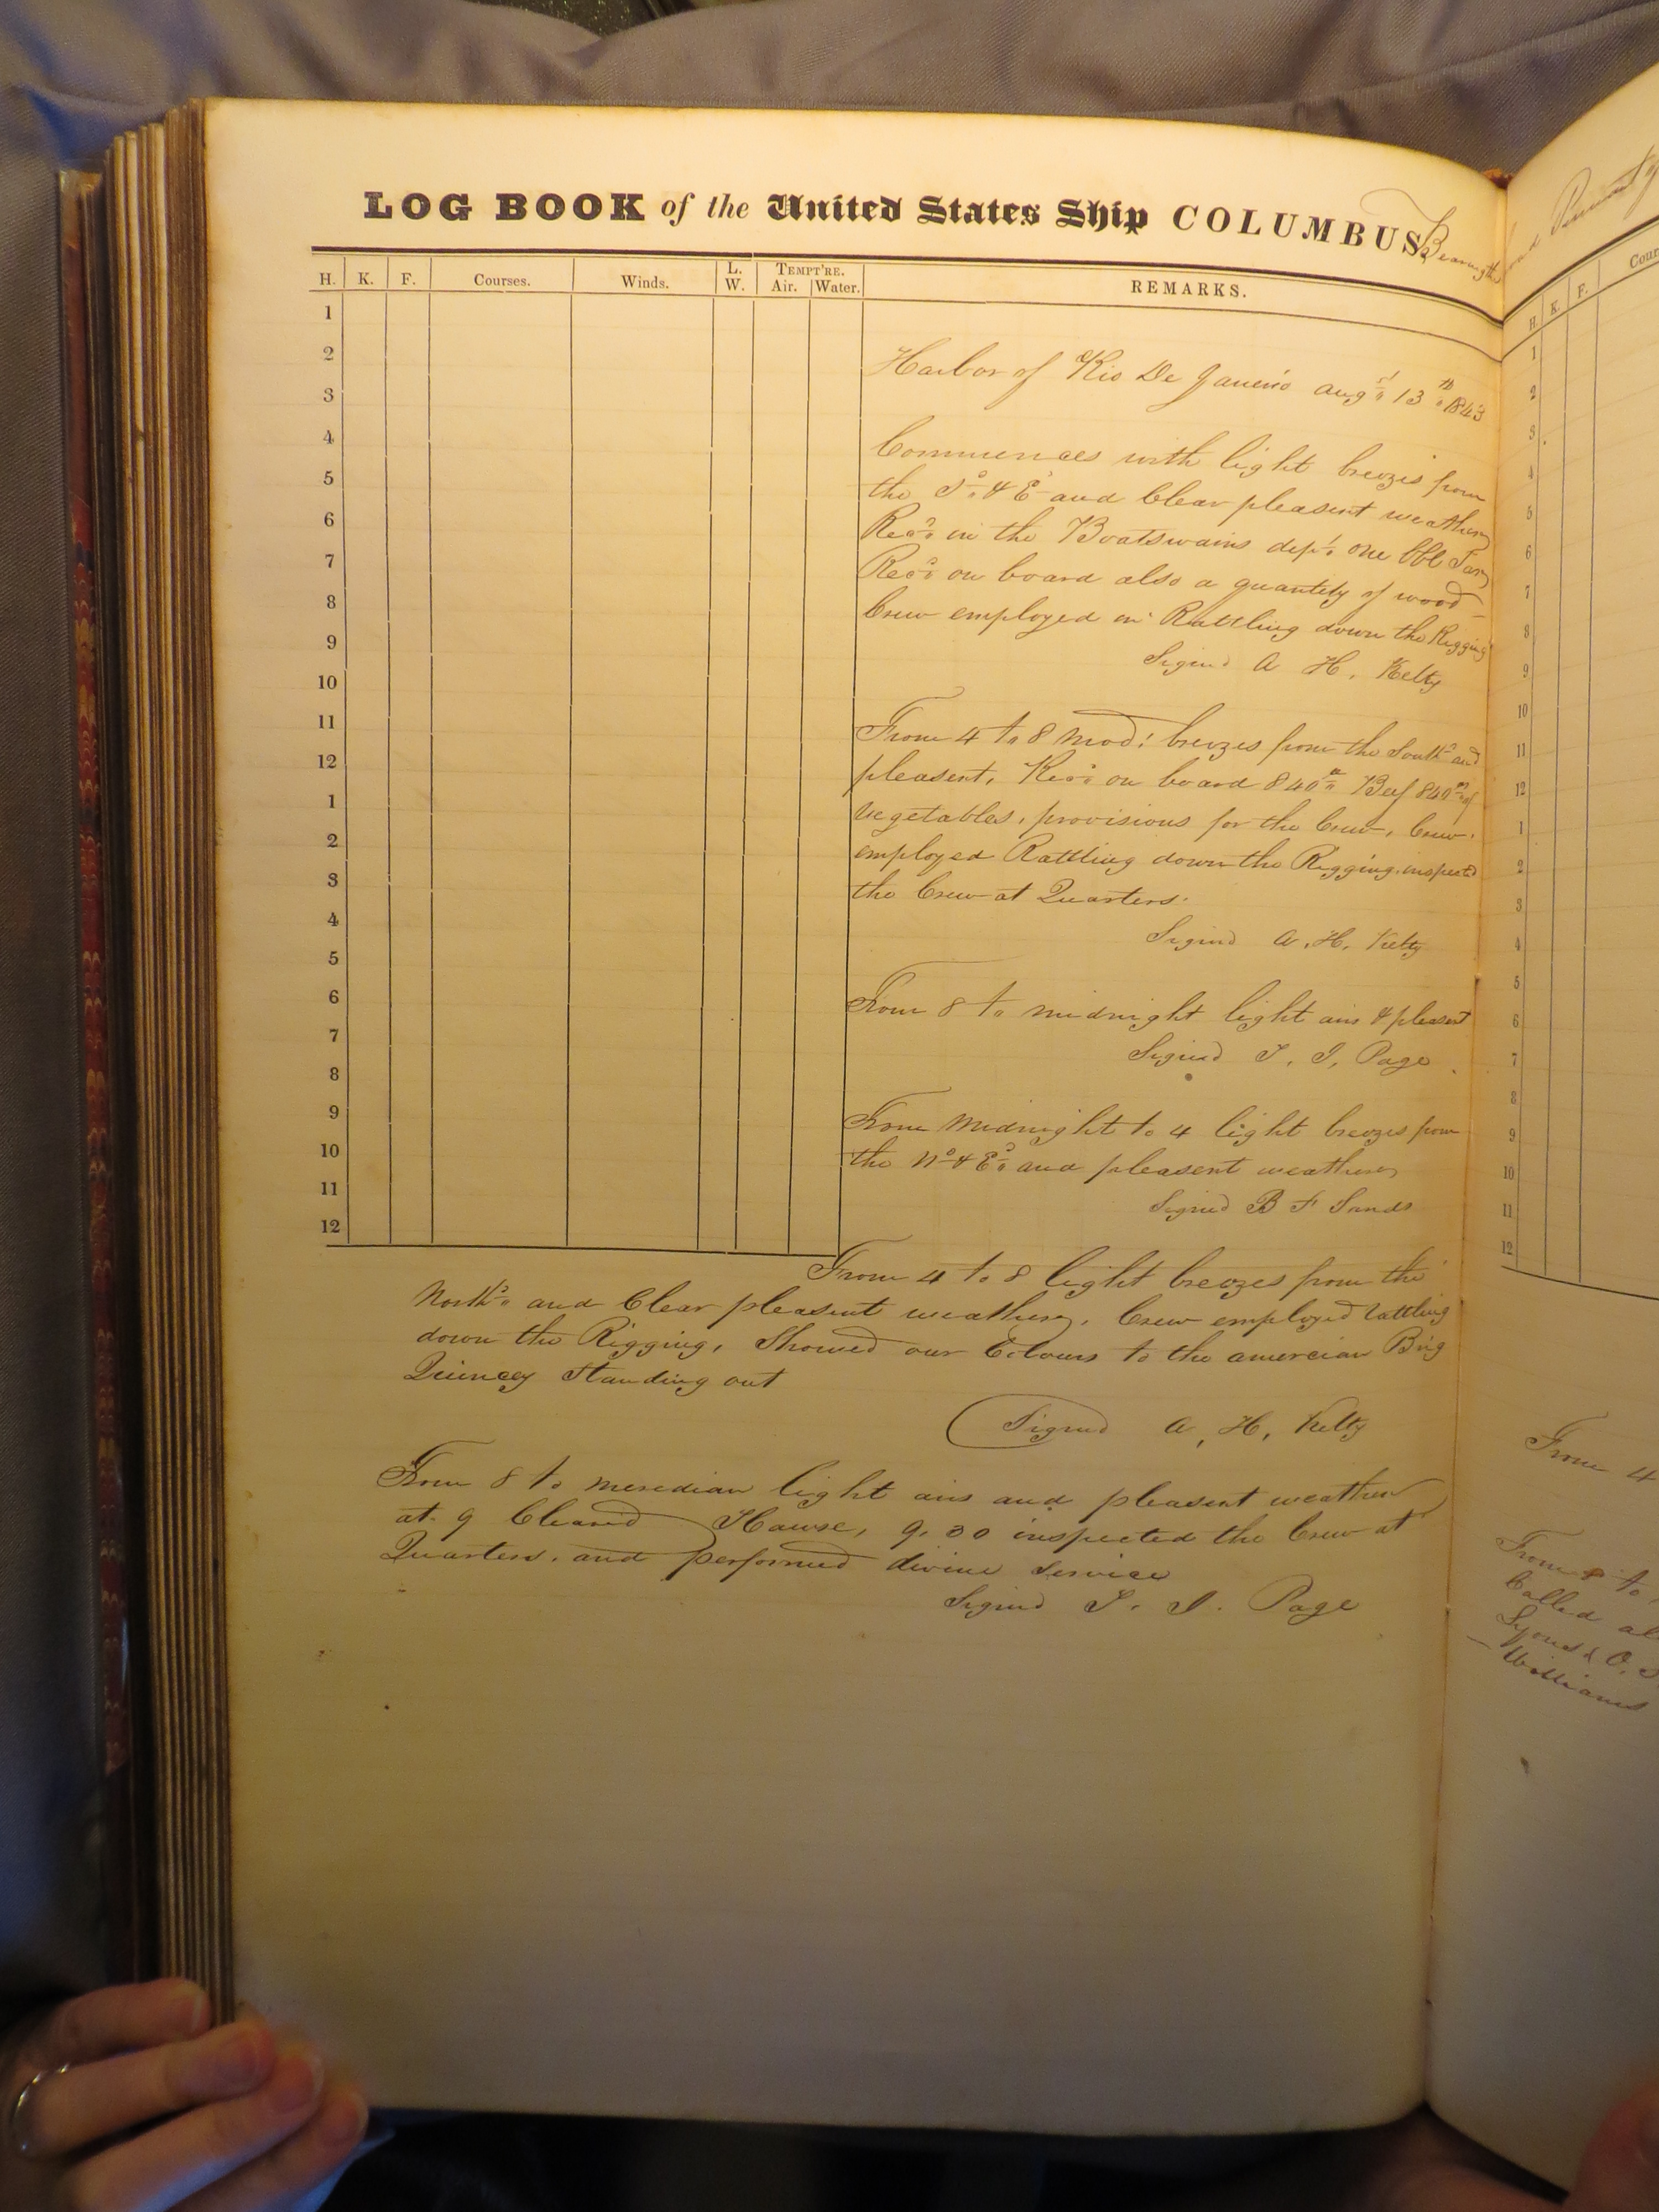 LOG BOOK of the United States Ship COLUMBUS, Bearing the
H. K. F. Courses. Winds. L. W. TEMPT'RE. Air. Water. REMARKS.
1
2
3
4
5
6
7
8
9
10
11
12
1
2
3
4
5
6
7
8
9
10
11
12
Harbor of Rio De Janeiro augst 13th 1843
Commences with light breezes from
the Sd & Ed and Clear pleasent weather
Recd in the Boatswains dept. one bbl Tar
Recd on board also a quantity of wood
Crew employed in Rattling down the Rigging
Signd A H. Kelty
From 4 to 8 Modt breezes from the Southd and
pleasent, Recd on board 840 lbs Beef 840 lbs of
vegetables, provisions for the Crew, Crew
employed Rattling down the Rigging. inspected
the Crew at Quarters.
Signd A. H. Kelty
From 8 to midnight light airs & pleasent
Signed T. J. Page
From Midnight to 4 light breezes from
the Nd & Ed and pleasent weather
Signed B F Sands
From 4 to 8 light breezes from the
Northd and Clear pleasent weather, Crew employed rattling
down the Rigging, Showed our Colours to the amercian Brig
Quincey Standing out
Signed A, H, Kelty
From 8 to meredian light airs and pleasent weather
at 9 Cleared Hawse, 9.30 inspected the Crew at
Quarters. and performed divine Service
Signd T. J. Page
H. K. F. Cour
1
2
3
4
5
6
7
8
9
10
11
12
1
2
3
4
5
6
7
8
9
10
11
12
From 4
From 8 to
Called al
Williams